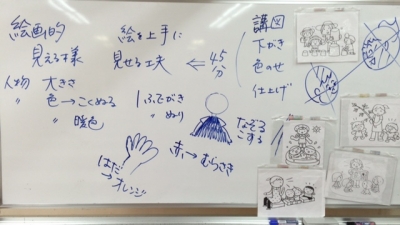 絵画的
見える様
絵を上手に
見せる工夫 ⇐ 45分
講図
下がき
色のせ
仕上げ
人物 大きさ
色→こくぬる
〃 暖色
1ふでがき
〃 ぬり
なぞる
こする
はだ
→オレンジ
赤→むらさき